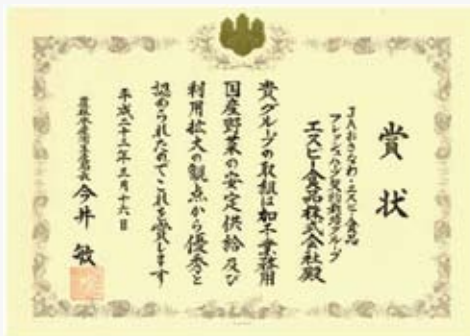 賞状
JAおきなわ・エスビー食品
フレッシュハーブ契約栽培グループ
エスビー食品株式会社殿
貴グループの取組は加工業務用
国産野菜の安定供給及び
利用拡大の観点から優秀と
認められたのでこれを賞します
平成二十三年三月十六日
農林水産省生産局長 今井 敏